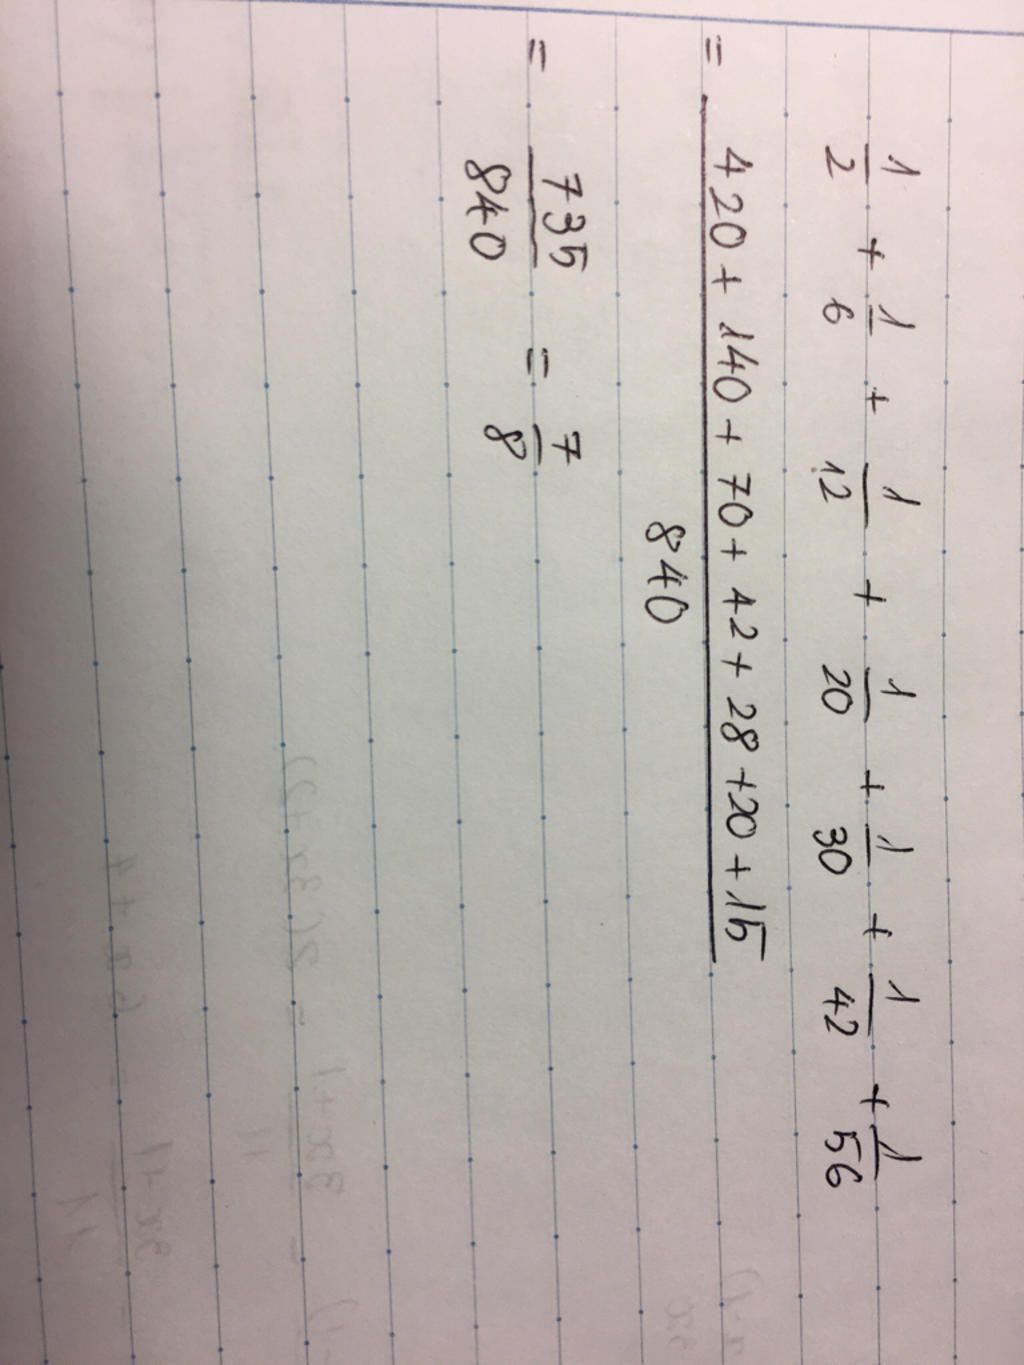 1/2 + 1/6 + 1/12 + 1/20 + 1/30 + 1/42 + 1/56
= 420 + 140 + 70 + 42 + 28 + 20 + 15 / 840
= 735/840 = 7/8